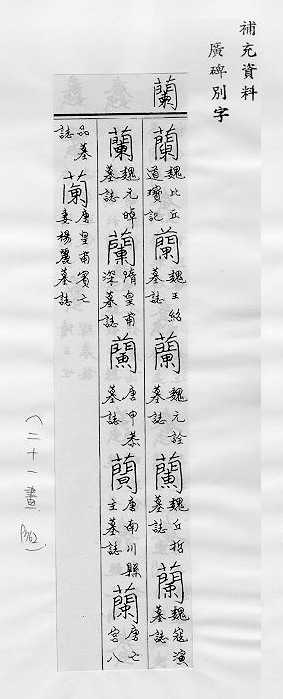 補充資料
廣碑別字
蘭
蘭 魏比丘道瓊記 蘭 魏王紹墓誌 蘭 魏元詮墓誌 蘭 魏丘哲墓誌 蘭 魏寇演墓誌
蘭 魏元暐墓誌 蘭 隋皇甫深墓誌 蘭 唐甲恭墓誌 蘭 唐南川縣主墓誌 蘭 唐亡宮八
品墓誌 蘭 唐皇甫賓亡妻楊麗墓誌
(二十一畫 P362)